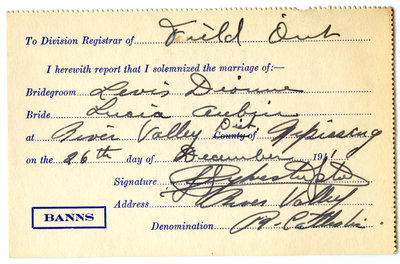 To Division Registrar of Field Ont
I herewith report that I solemnized the marriage of:—
Bridegroom Levis Dionne
Bride Lucia Aubin
at River Valley Dist. County of Nipissing
on the 26th day of December 191
Signature
Address River Valley
BANNS
Denomination R. Catholic